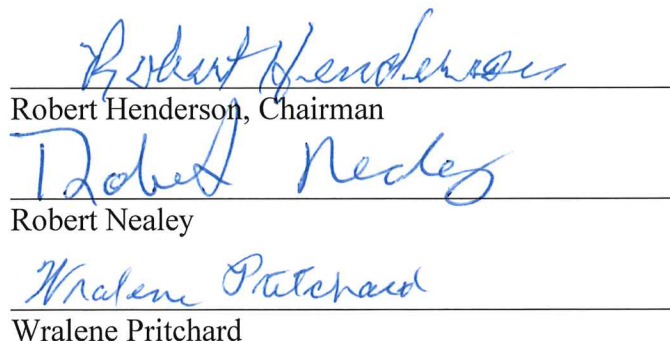 Robert Henderson
Robert Henderson, Chairman
Robert Nealey
Robert Nealey
Wralene Pritchard
Wralene Pritchard